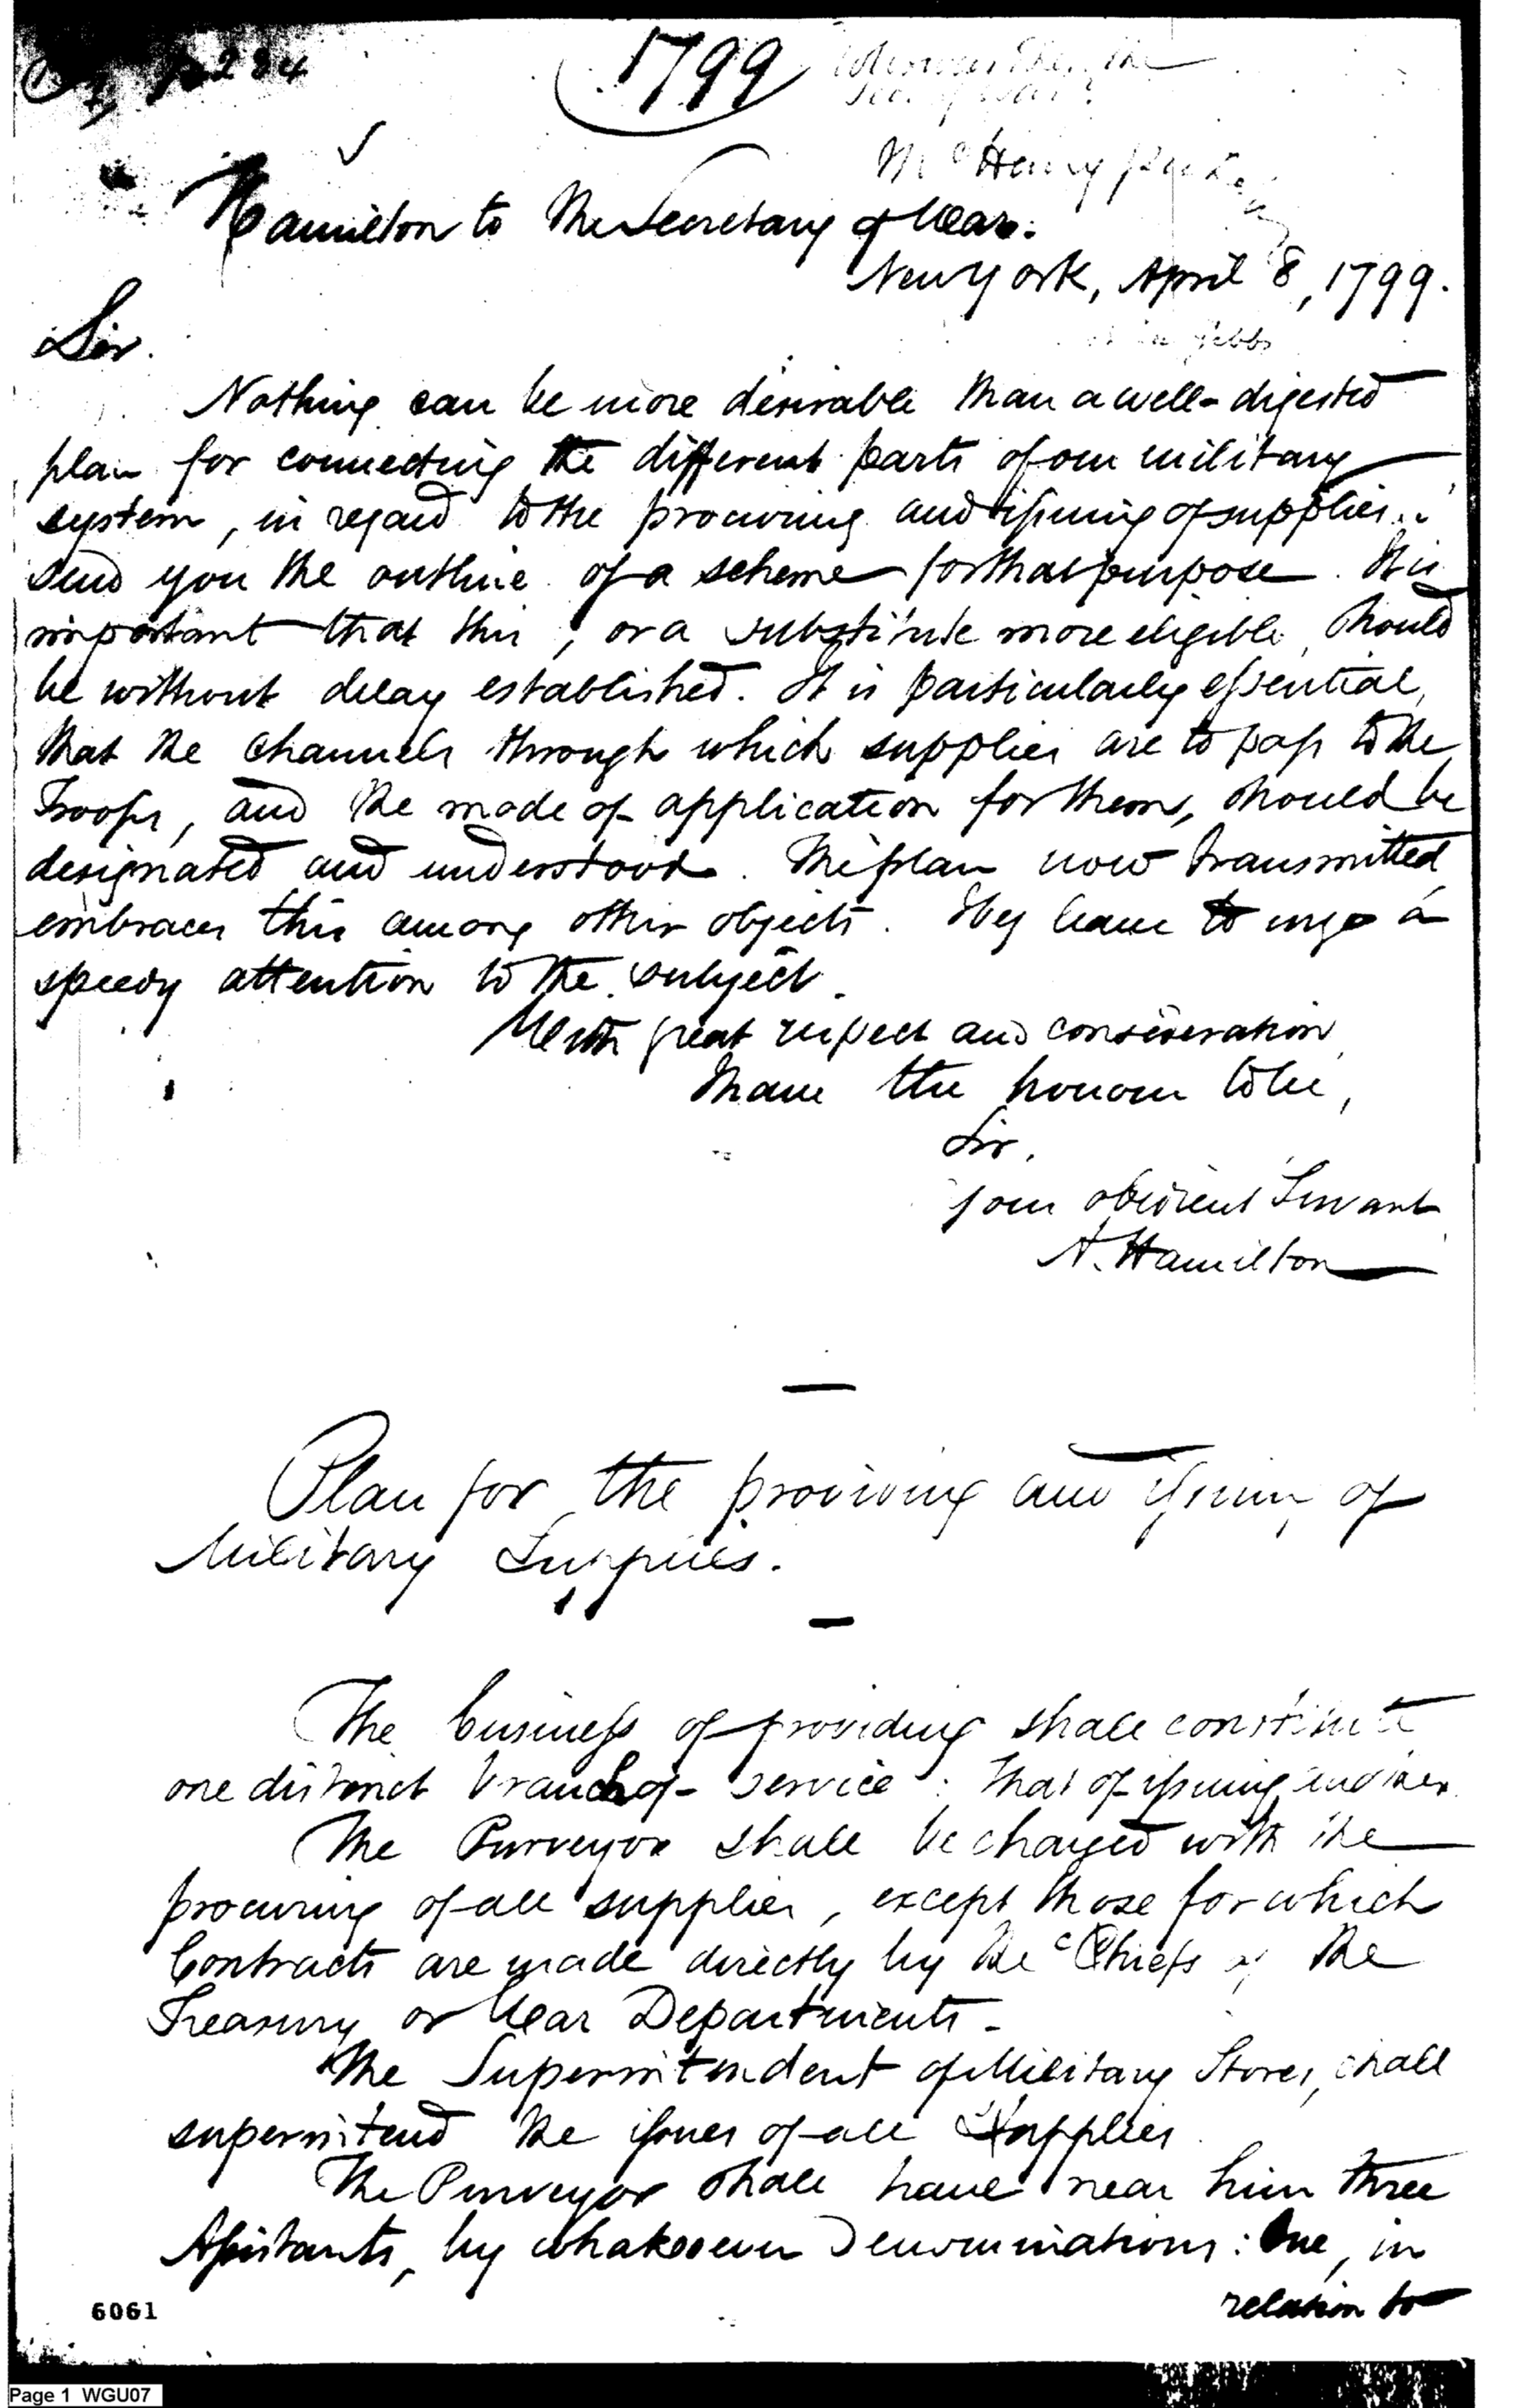 1799
McHenry
Hamilton to the Secretary of War.
New York, April 8, 1799.
Sir.
Nothing can be more desirable than a well-digested
plan for connecting the different parts of our military
system, in regard to the procuring and issuing of supplies. I
send you the outline of a scheme for that purpose. It is
important that this, or a substitute more eligible, should
be without delay established. It is particularly essential,
that the channels through which supplies are to pass to the
Troops, and the mode of application for them, should be
designated and understood. The plan now transmitted
embraces this among other objects. I beg leave to urge a
speedy attention to the subject.
With great respect and consideration
I have the honour to be,
Sir,
your obedient Servant
A. Hamilton
Plan for the providing and issuing of
Military Supplies.
The business of providing shall constitute
one distinct branch of service; that of issuing, another.
The Purveyor shall be charged with the
procuring of all supplies, except those for which
Contracts are made directly by the Chiefs of the
Treasury or War Departments.
The Superintendent of Military Stores, shall
superintend the issues of all Supplies.
The Purveyor shall have near him three
Assistants, by whatsoever Denominations: One, in
relation to
6061
Page 1 WGU07